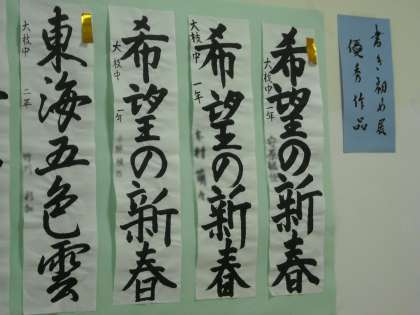 書き初め展
優秀作品
希望の新春
大枝中 一年
希望の新春
大枝中 一年
希望の新春
大枝中 一年
東海五色雲
大枝中 二年